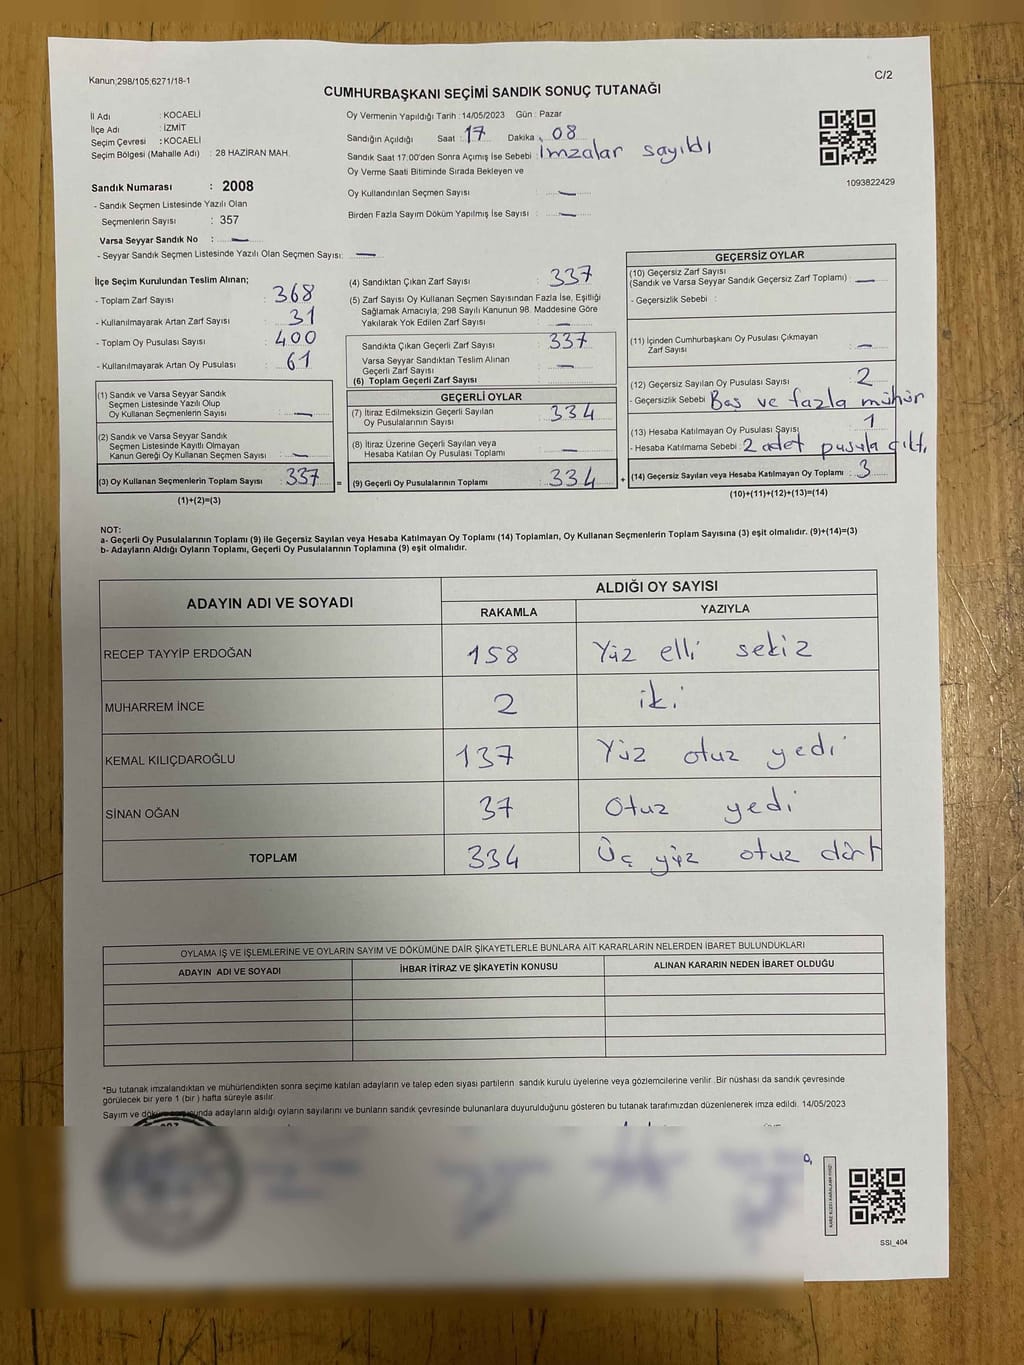 Kanun;298/105,6271/18-1
C/2
CUMHURBAŞKANI SEÇİMİ SANDIK SONUÇ TUTANAĞI
İl Adı : KOCAELİ
İlçe Adı : İZMİT
Seçim Çevresi : KOCAELİ
Seçim Bölgesi (Mahalle Adı) : 28 HAZİRAN MAH.
Sandık Numarası : 2008
- Sandık Seçmen Listesinde Yazılı Olan
Seçmenlerin Sayısı : 357
Varsa Seyyar Sandık No : —
- Seyyar Sandık Seçmen Listesinde Yazılı Olan Seçmen Sayısı: —
Oy Vermenin Yapıldığı Tarih : 14/05/2023 Gün : Pazar
Sandığın Açıldığı Saat : 17 Dakika : 08
Sandık Saat 17:00'den Sonra Açımış İse Sebebi : İmzalar sayıldı
Oy Verme Saati Bitiminde Sırada Bekleyen ve
Oy Kullandırılan Seçmen Sayısı : —
Birden Fazla Sayım Döküm Yapılmış İse Sayısı : —
1093822429
İlçe Seçim Kurulundan Teslim Alınan;
- Toplam Zarf Sayısı : 368
- Kullanılmayarak Artan Zarf Sayısı : 31
- Toplam Oy Pusulası Sayısı : 400
- Kullanılmayarak Artan Oy Pusulası : 61
(1) Sandık ve Varsa Seyyar Sandık
Seçmen Listesinde Yazılı Olup
Oy Kullanan Seçmenlerin Sayısı : —
(2) Sandık ve Varsa Seyyar Sandık
Seçmen Listesinde Kayıtlı Olmayan
Kanun Gereği Oy Kullanan Seçmen Sayısı : —
(3) Oy Kullanan Seçmenlerin Toplam Sayısı : 337 =
(1)+(2)=(3)
(4) Sandıktan Çıkan Zarf Sayısı : 337
(5) Zarf Sayısı Oy Kullanan Seçmen Sayısından Fazla İse, Eşitliği
Sağlamak Amacıyla, 298 Sayılı Kanunun 98. Maddesine Göre
Yakılarak Yok Edilen Zarf Sayısı : —
Sandıkta Çıkan Geçerli Zarf Sayısı : 337
Varsa Seyyar Sandıktan Teslim Alınan
Geçerli Zarf Sayısı : —
(6) Toplam Geçerli Zarf Sayısı :
GEÇERLİ OYLAR
(7) İtiraz Edilmeksizin Geçerli Sayılan
Oy Pusulalarının Sayısı : 334
(8) İtiraz Üzerine Geçerli Sayılan veya
Hesaba Katılan Oy Pusulası Toplamı : —
(9) Geçerli Oy Pusulalarının Toplamı : 334 +
GEÇERSİZ OYLAR
(10) Geçersiz Zarf Sayısı
(Sandık ve Varsa Seyyar Sandık Geçersiz Zarf Toplamı) : —
- Geçersizlik Sebebi :
(11) İçinden Cumhurbaşkanı Oy Pusulası Çıkmayan
Zarf Sayısı : —
(12) Geçersiz Sayılan Oy Pusulası Sayısı : 2
- Geçersizlik Sebebi : Boş ve fazla mühür
(13) Hesaba Katılmayan Oy Pusulası Sayısı : 1
- Hesaba Katılmama Sebebi : 2 adet pusula çıktı
(14) Geçersiz Sayılan veya Hesaba Katılmayan Oy Toplamı : 3
(10)+(11)+(12)+(13)=(14)
NOT:
a- Geçerli Oy Pusulalarının Toplamı (9) ile Geçersiz Sayılan veya Hesaba Katılmayan Oy Toplamı (14) Toplamları, Oy Kullanan Seçmenlerin Toplam Sayısına (3) eşit olmalıdır. (9)+(14)=(3)
b- Adayların Aldığı Oyların Toplamı, Geçerli Oy Pusulalarının Toplamına (9) eşit olmalıdır.
ADAYIN ADI VE SOYADI
ALDIĞI OY SAYISI
RAKAMLA YAZIYLA
RECEP TAYYİP ERDOĞAN 158 Yüz elli sekiz
MUHARREM İNCE 2 iki
KEMAL KILIÇDAROĞLU 137 Yüz otuz yedi
SİNAN OĞAN 37 Otuz yedi
TOPLAM 334 Üç yüz otuz dört
OYLAMA İŞ VE İŞLEMLERİNE VE OYLARIN SAYIM VE DÖKÜMÜNE DAİR ŞİKAYETLERLE BUNLARA AİT KARARLARIN NELERDEN İBARET BULUNDUKLARI
ADAYIN ADI VE SOYADI İHBAR İTİRAZ VE ŞİKAYETİN KONUSU ALINAN KARARIN NEDEN İBARET OLDUĞU
*Bu tutanak imzalandıktan ve mühürlendikten sonra seçime katılan adayların ve talep eden siyasi partilerin sandık kurulu üyelerine veya gözlemcilerine verilir. Bir nüshası da sandık çevresinde
görülecek bir yere 1 (bir) hafta süreyle asılır.
Sayım ve döküm sonunda adayların aldığı oyların sayılarını ve bunların sandık çevresinde bulunanlara duyurulduğunu gösteren bu tutanak tarafımızdan düzenlenerek imza edildi. 14/05/2023
SSI_404